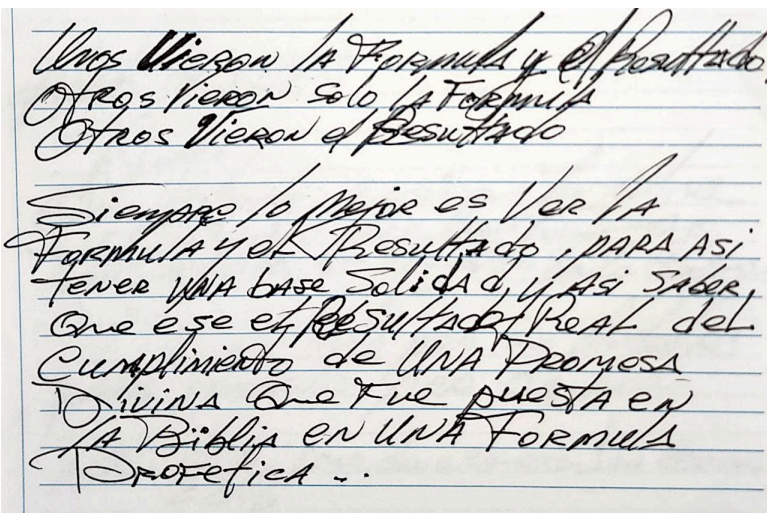 Unos Vieron la Formula y el Resultado.
Otros Vieron solo la Formula
Otros Vieron el Resultado
Siempre lo Mejor es Ver la
Formula y el Resultado, para asi
tener una base Solidad, y asi saber,
Que ese es Resultado Real del
Cumplimiento de una Promesa
Divina Que Fue puesta en
la Biblia en una Formula
Profetica...